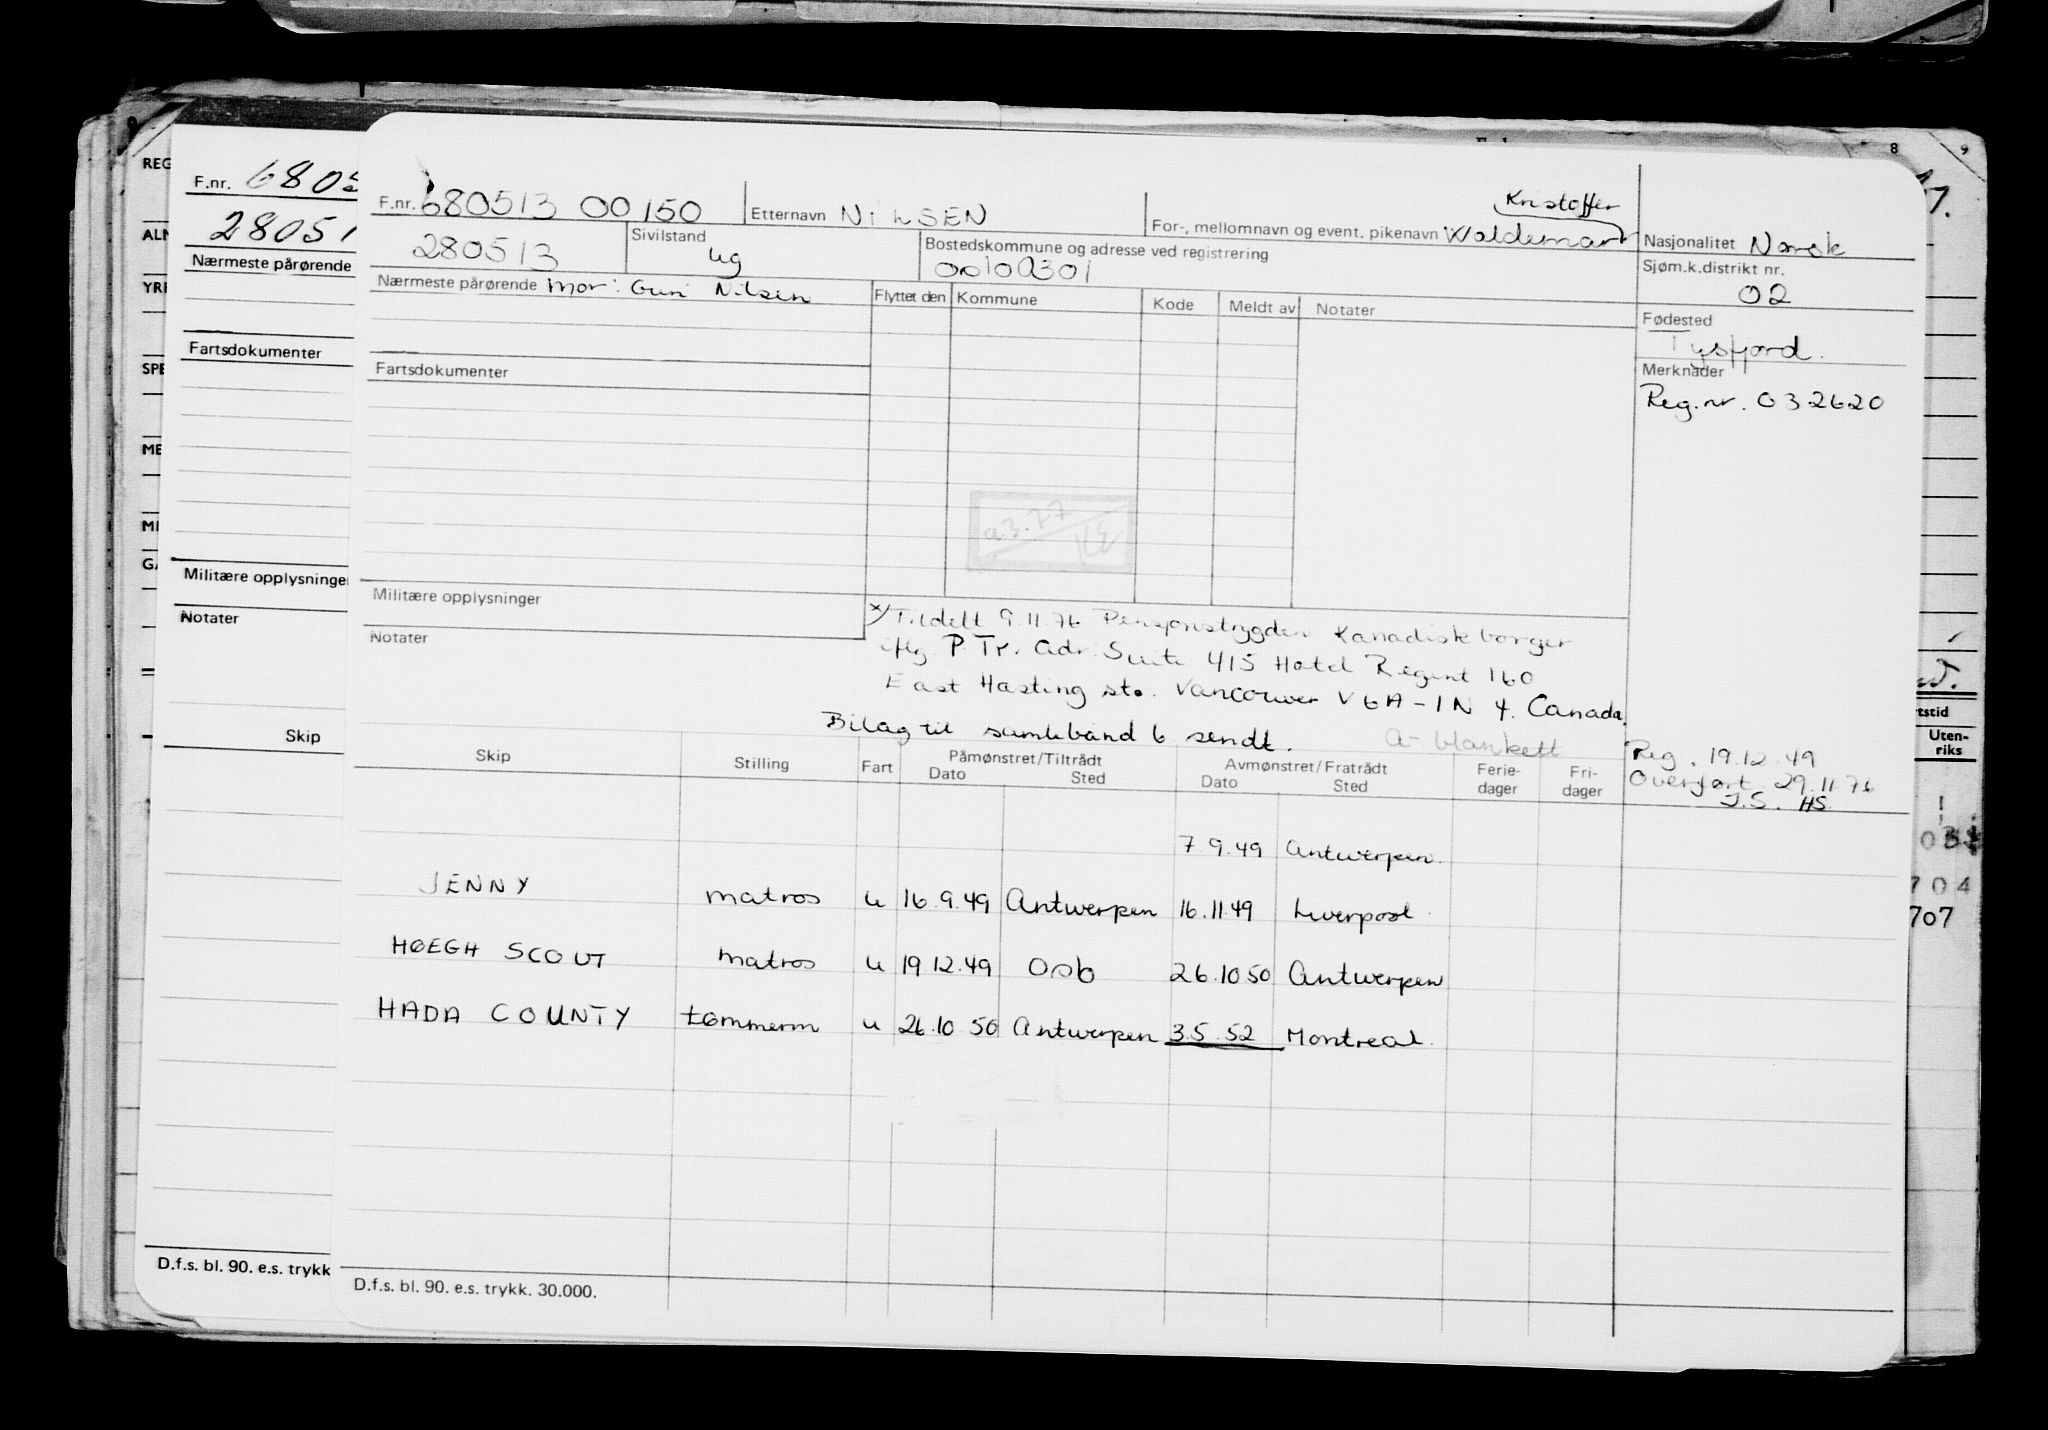 F.nr. 680513 00150 Etternavn NILSEN For-, mellomnavn og event. pikenavn Waldemar Kristoffer Nasjonalitet Norsk
280513 Sivilstand ug Bostedskommune og adresse ved registrering 00100301 Sjøm.k.distrikt nr. 02
Nærmeste pårørende Mor: Guri Nilsen Flyttet den Kommune Kode Meldt av Notater
Fødested Tysfjord.
Fartsdokumenter
Merknader
Reg.nr. 032620
Militære opplysninger
Notater
x) Tildelt 9.11.76 Pensjonstrygden Kanadisk borger
iflg P.Tr. Adr: Suite 415 Hotel Regent 160
East Hasting str. Vancouver V6A-1N 4. Canada.
Bilag til samlebånd 6 sendt. A- blankett
Reg. 19.12.49
Overført 29.11.76
J.S. HS
Skip Stilling Fart Påmønstret/Tiltrådt Avmønstret/Fratrådt Ferie- Fri-
Dato Sted Dato Sted dager dager
7.9.49 Antwerpen.
JENNY matros u 16.9.49 Antwerpen 16.11.49 Liverpool
HØEGH SCOUT matros u 19.12.49 Oslo 26.10 50 Antwerpen
HADA COUNTY tømmerm u 26.10 50 Antwerpen 3.5.52 Montreal.
D.f.s. bl. 90. e.s. trykk. 30.000.
F.nr. 6805
28051
Nærmeste pårørende
Fartsdokumenter
Militære opplysninge
Notater
Skip
D.f.s. bl. 90. e.s. trykk
REG
ALM
YRK
SPE
ME
MI
GA
8
9
tstid
Uten-
riks
704
707